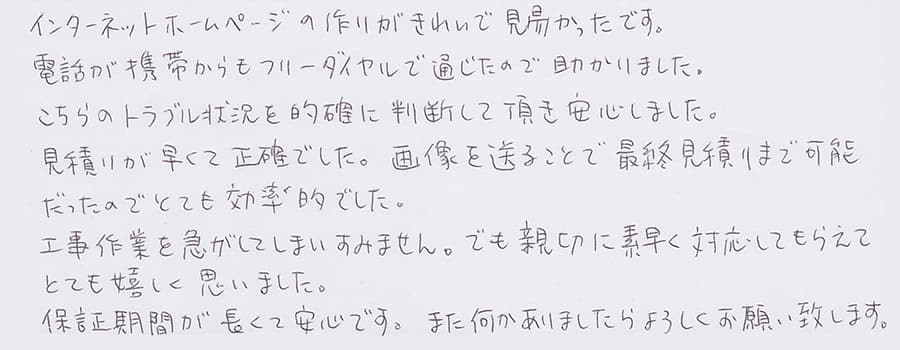 インターネットホームページの作りがきれいで見易かったです。
電話が携帯からもフリーダイヤルで通じたので助かりました。
こちらのトラブル状況を的確に判断して頂き安心しました。
見積りが早くて正確でした。画像を送ることで最終見積りまで可能
だったのでとても効率的でした。
工事作業を急がしてしまいすみません。でも親切に素早く対応してもらえて
とても嬉しく思いました。
保証期間が長くて安心です。また何かありましたらよろしくお願い致します。